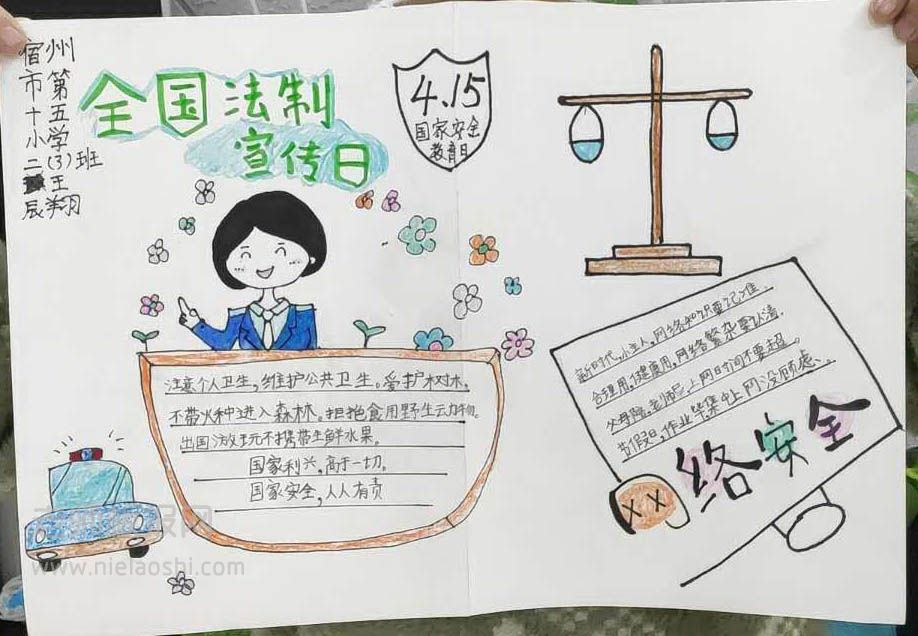 宿州
市第
十五
小学
二(3)班
王
辰翔
全国法制
宣传日
4.15
国家安全
教育日
注意个人卫生,维护公共卫生。爱护树木,
不带火种进入森林。拒绝食用野生动物。
出国游玩不携带生鲜水果。
国家利兴,高于一切。
国家安全,人人有责
新时代,小主人,网络知识要记准.
合理用,健康用,网络繁杂要认清.
父母陪,老师 上网时间不要超。
节假日,作业 上网没顾虑、
络安全
www.nielaoshi.com